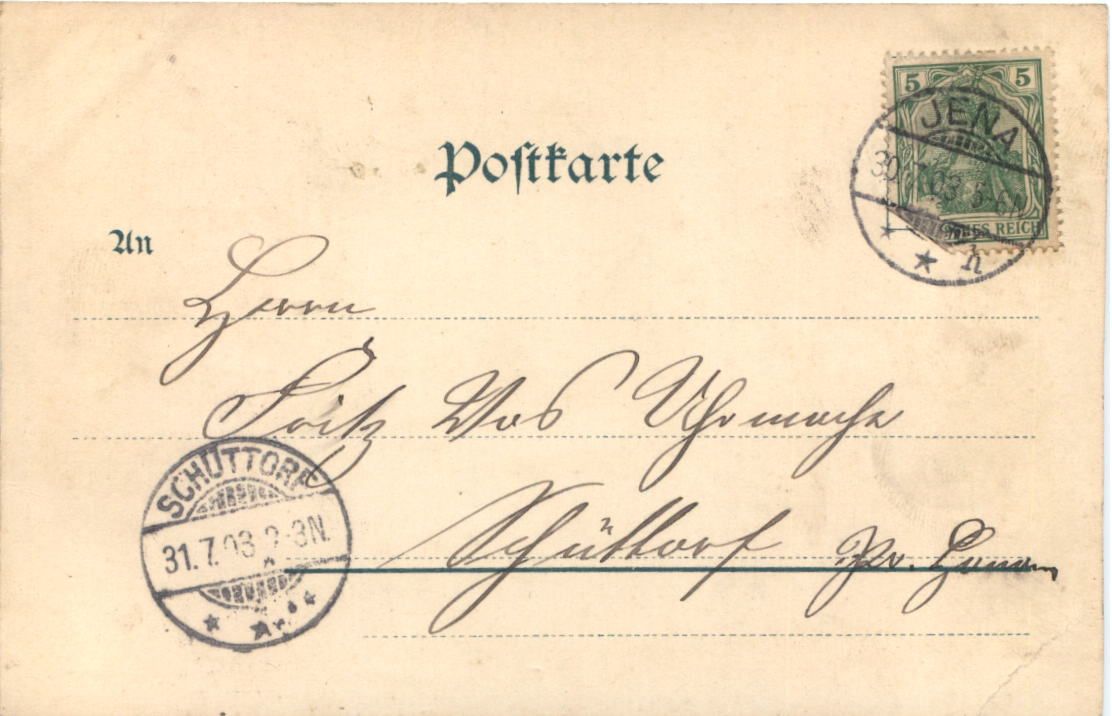 5 5
JENA
30.7.03 5-6N
HES REICH
h
Postkarte
An
Herrn
Fritz Vos Uhrmache
Schüttorf Pr.
SCHÜTTORF
31.7.03 2-3N.